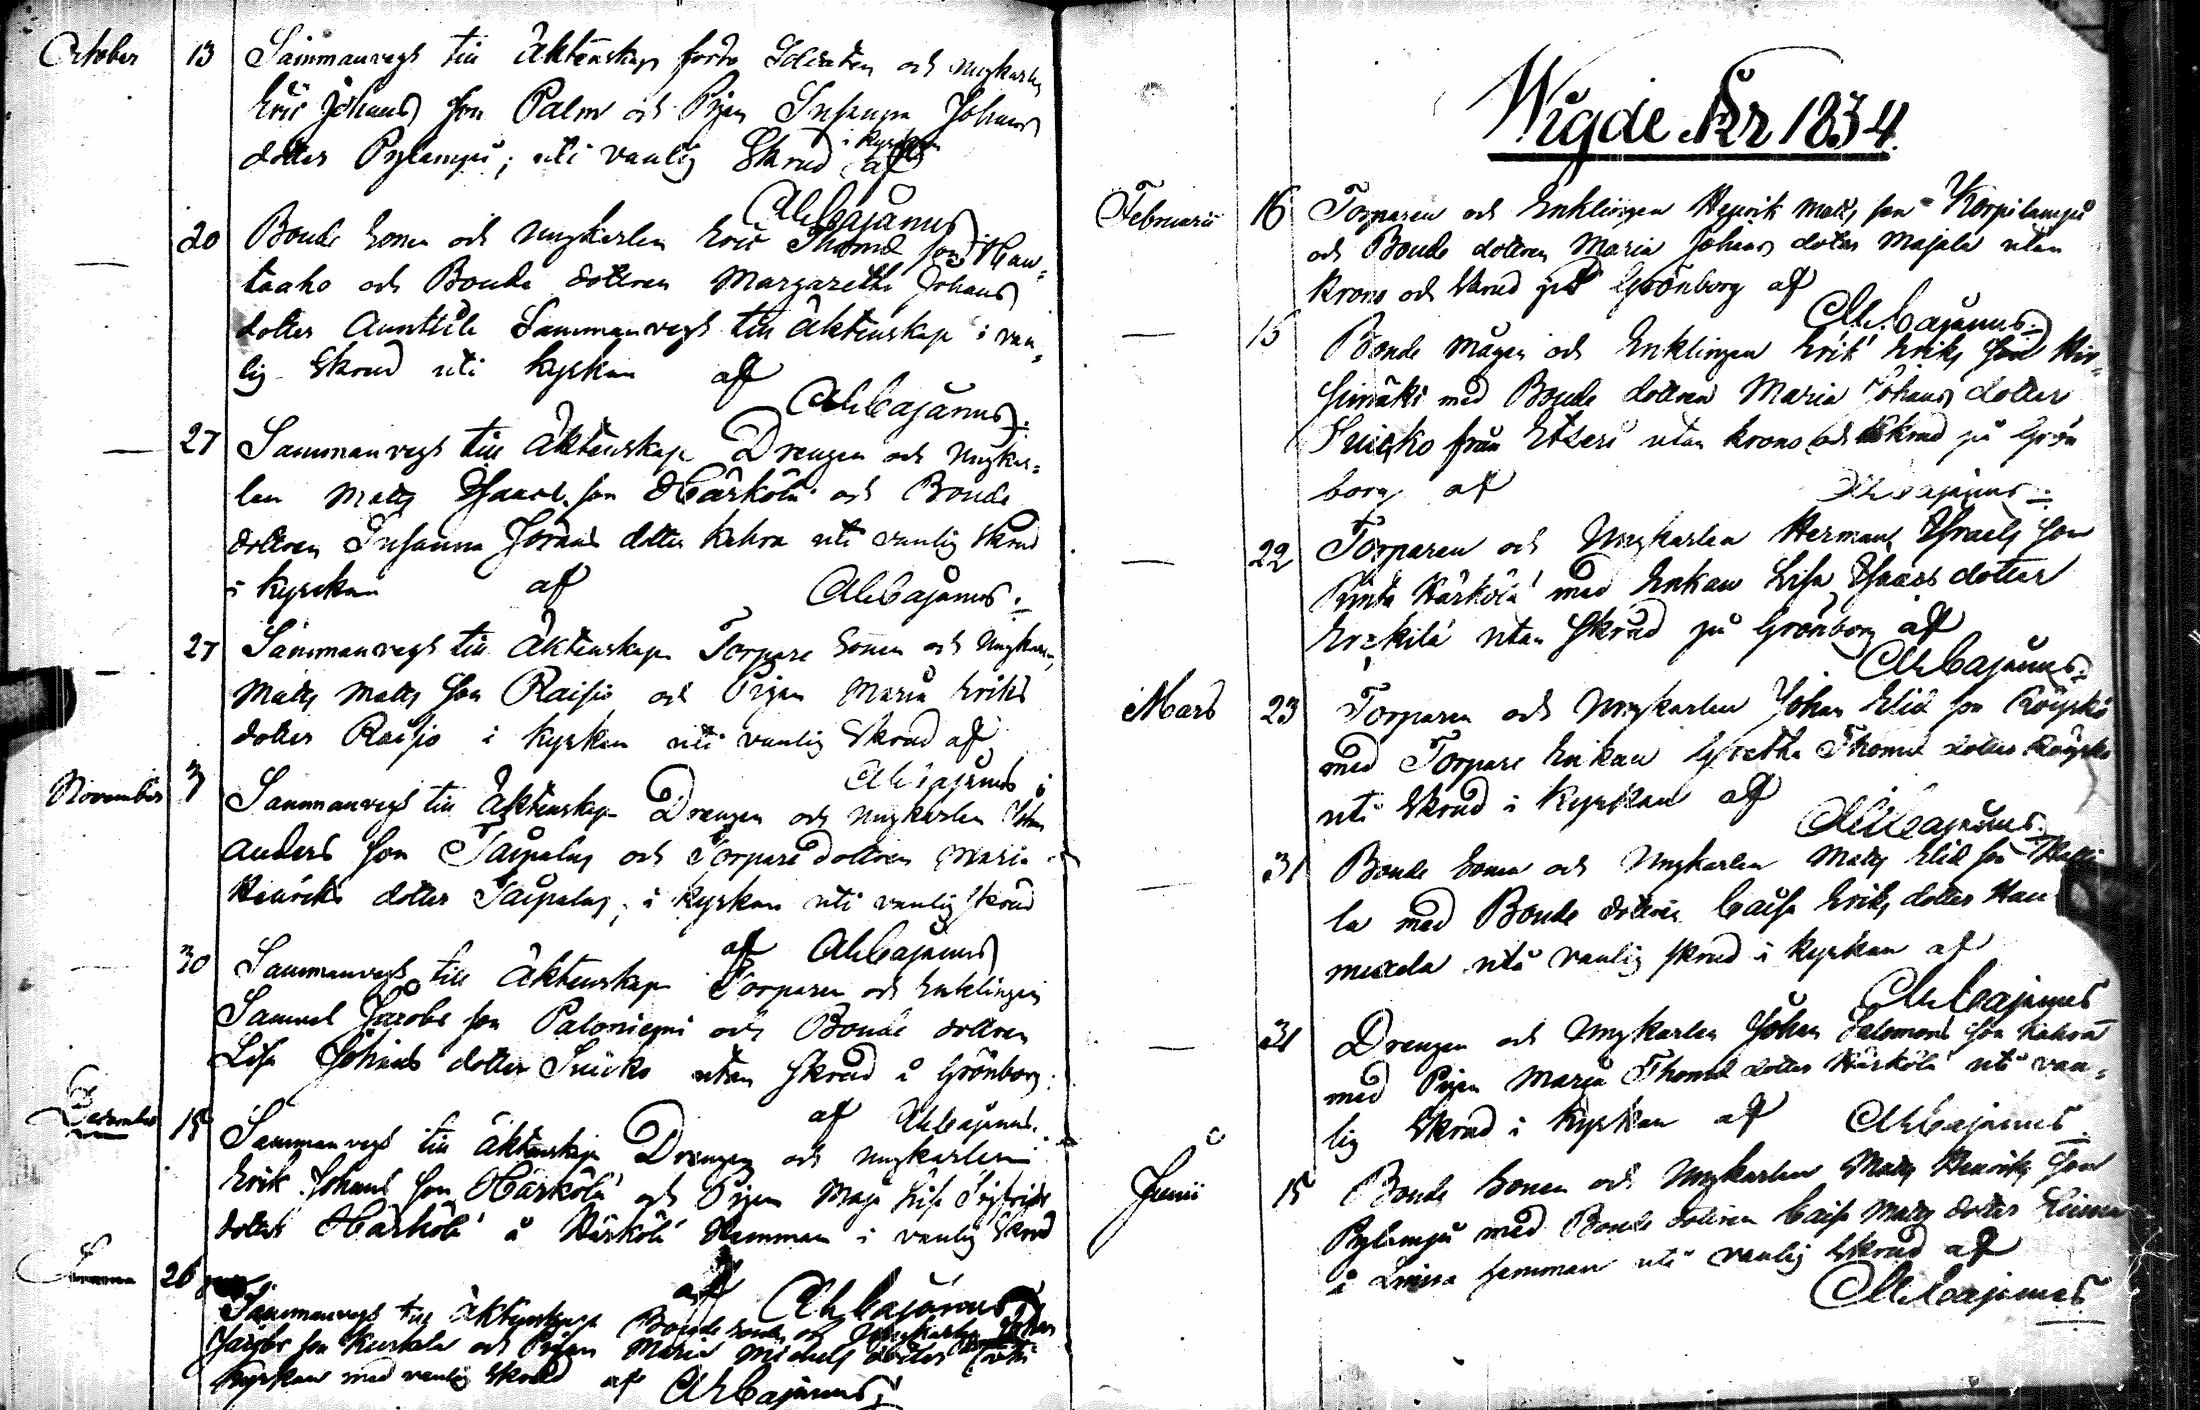 October 13 Sammanvegd till äktenskap förde Soldaten och ungkarlen
Eric Johans son Palm och Pigan Susanna Johans
i kyrkan
dotter Pylampi; uti vanlig Skrud af
AhCajanus
20 Bonde Sonen och ungkarlen Eric Thoms son Hau-
taaho och Bonde dottren Margaretha Johans
dotter Anttila Sammanvegd till äktenskap i van-
lig Skrud uti kyrkan af
AhCajanus.
27 Sammanvegd till äktenskap Drengen och ungkar-
len Matts Isaacs son Härkölä och Bonde
dottren Susanna dotter uti vanlig Skrud
i kyrckan af AhCajanus.
27 Sammanvegd till äktenskap Torpare Sonen och Ungkarlen
Matts Matts Son Raisjo och Pigan Maria Eriks
dotter Raisjo i kyrkan uti vanlig Skrud af
AhCajanus
November 3 Sammanvegd till äktenskap Drengen och ungkarlen
Anders Son Taipalus och Torpare dottren Maria
Henriks dotter Taipalus; i kyrkan uti vanlig skrud
af AhCajanus
30 Sammanvegd till äktenskap Torparen och Enklingen
Samuel Jacobs son Paloniemi och Bonde dottren
Lisa Johans dotter Suicko utan Skrud å Grönborg.
af AhCajanus.
December 15 Sammanvegd till äktenskap Drengen och ungkarlen
Erik Johans Son Härkölä och Pigan Maja Lisa Sigfrids
dotter Härkölä å Härkölä Hemman i vanlig Skrud
af AhCajanus
26
Sammanvegd till äktenskap Bonde sonen och Ungkarlen Johan
Jacobs son och Pigan Maria Michels dotter
kyrkan med vanlig Skrud af AhCajanus.
Wigde År 1834.
Februarii 16 Torparen och Enklingen Henrik Matts son Korpilampi
och Bonde dottren Maria Johans dotter Majala utan
krono och Skrud på Grönborg af
AhCajanus.
15 Bonde mågen och Enklingen Erik Eriks son Hir-
simäki med Bonde dottren Maria Johans dotter
Suicko från Etseri utan krono och Skrud på Grön
borg af AhCajanus.
22 Torparen och Ungkarlen Hermans Israels son
Härkölä med Enkan Lisa Isaacs dotter
Erkkilä utan Skrud på Grönborg af
AhCajanus.
Mars 23 Torparen och Ungkarlen Johan Elia son Röyskö
med Torpare Enkan Gretha Thoms dotter Röyskö
uti Skrud i kyrkan af
AhCajanus.
31 Bonde Sonen och Ungkarlen Matts Elia son
la med Bonde dottren Caisa Eriks dotter Han
uti vanlig skrud i kyrkan af
AhCajanus
31 Drengen och Ungkarlen Johan Salomons son
med Pigan Maria Thoms dotter Härkölä uti van-
lig Skrud i kyrkan af AhCajanus.
Junii 15 Bonde Sonen och Ungkarlen Matts Henriks Son
Pylampi med Bonde dottren Caisa Matts dotter Linna
å Linna hemman uti vanlig Skrud af
AhCajanus